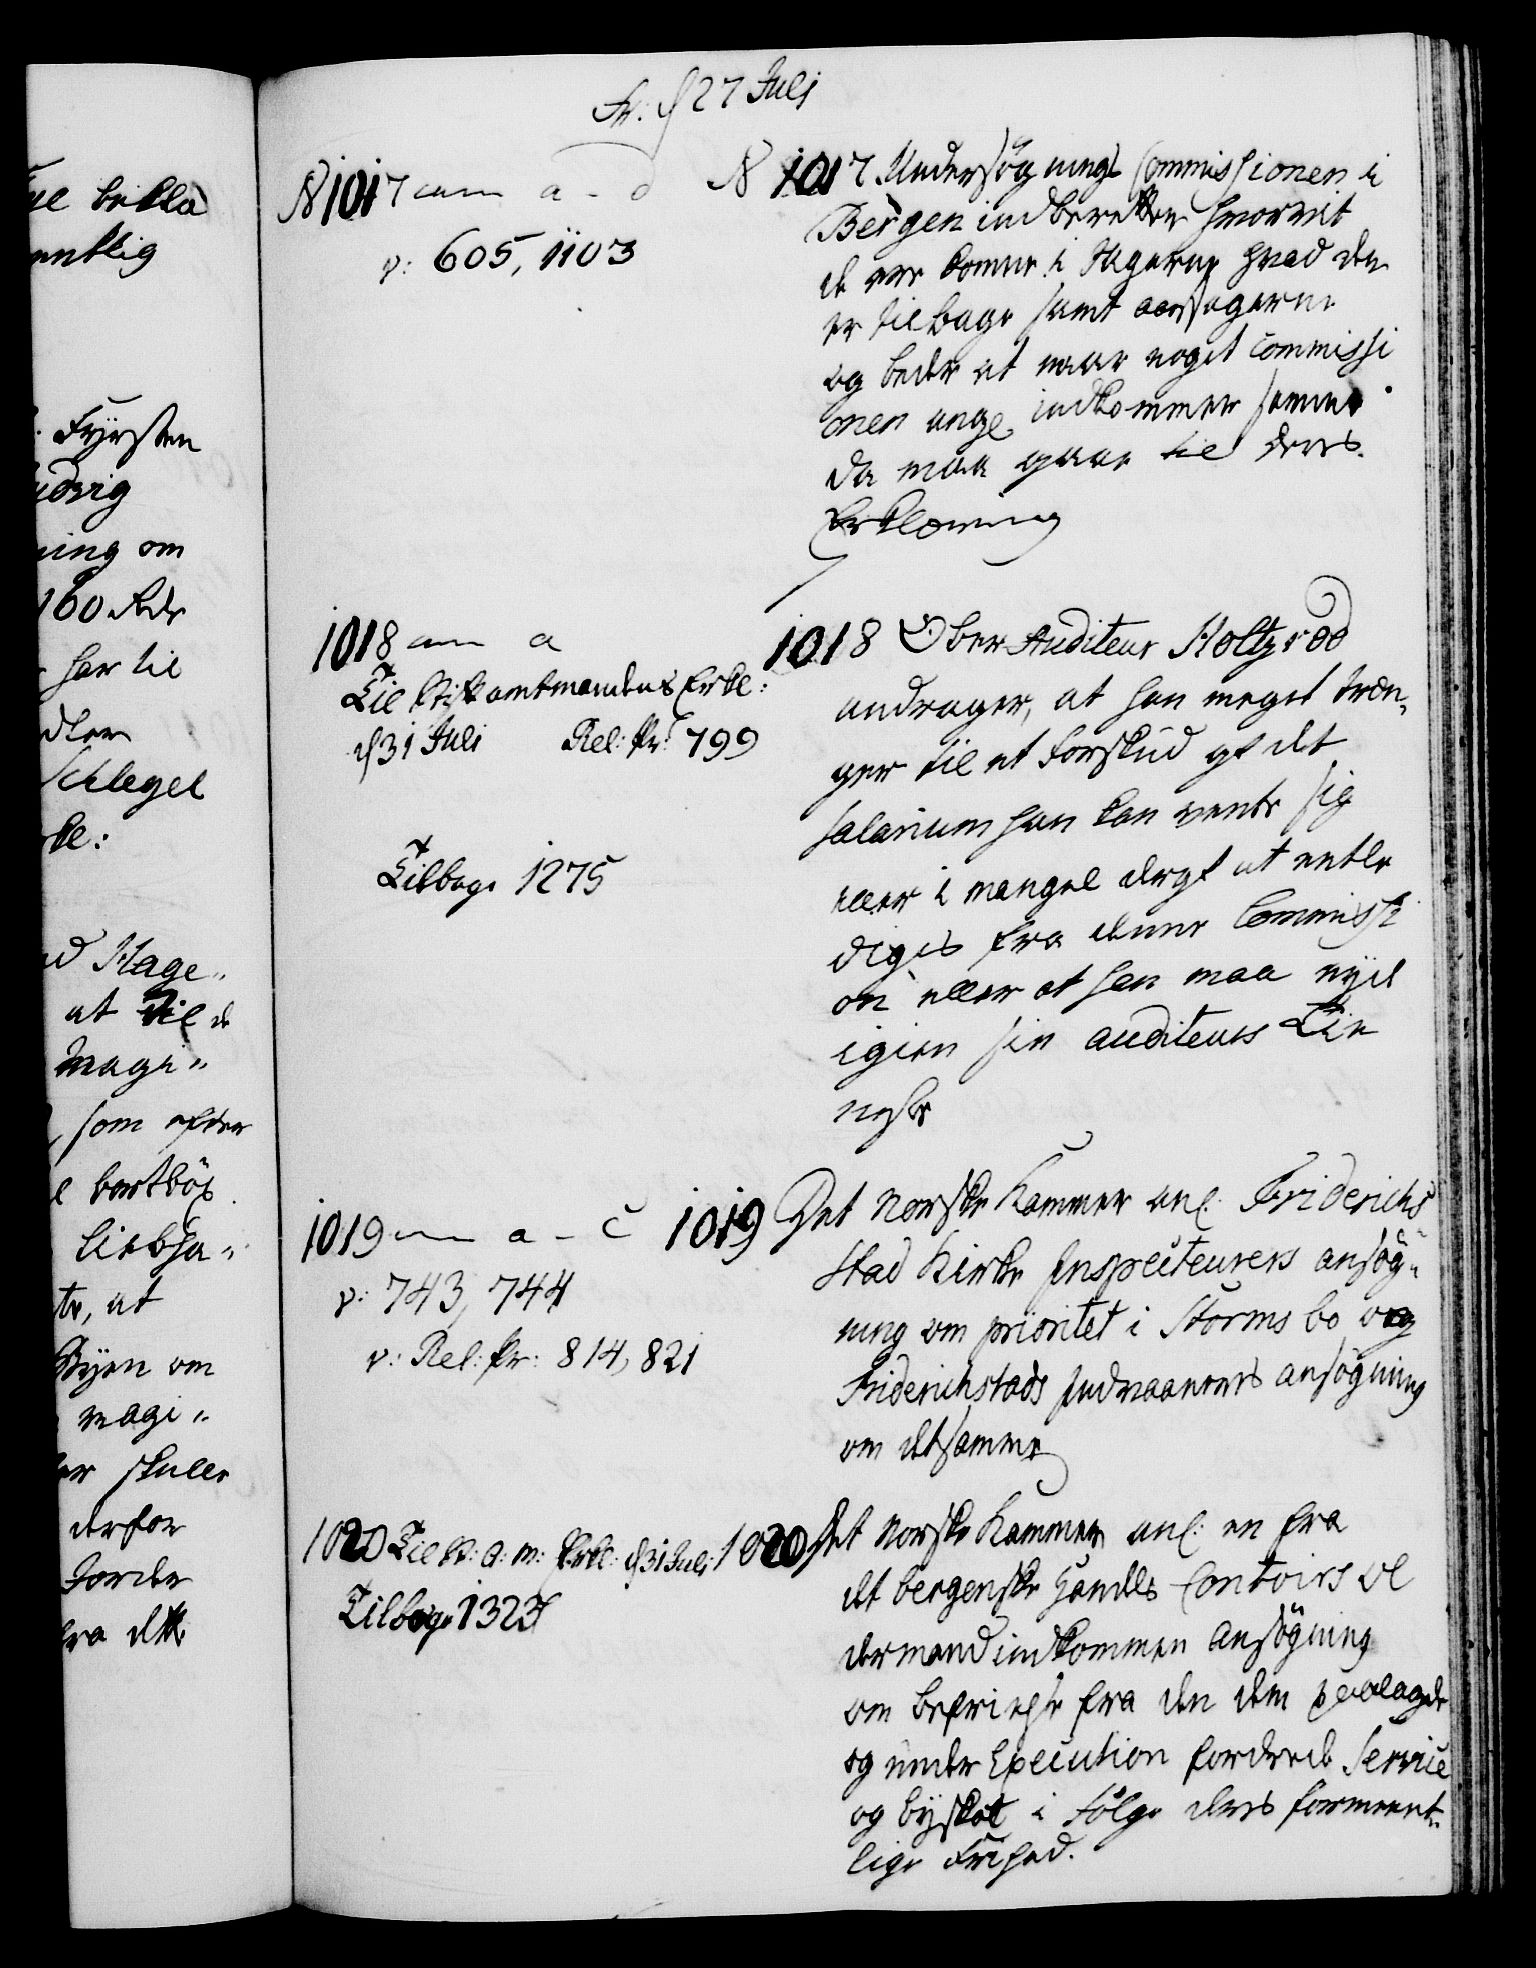 Fr: d 27 Juli
N 1017 cum a - d
v: 605, 1103
N 1017 Undersøgnings Commissionen i
Bergen indberetter hvorvit
de ere komne i Sagerne hvad der
er tilbage samt aarsagerne
og beder at naar noget Commissi
onen ang. indkommer samme
da maa gaae til deres
Erklæring
1018 cum a
Til Stiftamtmandens Erkl:
d 31 Juli Rel: Pr: 799
Tilbage 1275
1018 Ober Auditeur Holtzrød
andrager, at han meget træn„
ger til et Forskud af det
salarium han kan vente sig
eller i mangel deraf at entle
diges fra denne Commissi
on eller at han maa nyde
igien sin auditeurs Tie
neste
1019 cum a - c
v: 743, 744
v: Rel: Pr: 814, 821
1019 Det Norske Kammer anl. Friderichs
stad Kirke Inspecteurers ansøg„
ning om prioritet i Storms bo og
Friderichstads Indvaaneres ansøgning
om detsamme
1020 Til St: a: m: Erkl: d 31 Juli
Tilbage 1323
1020 Det Norske Kammer anl: en fra
det bergenske Handels Contoirs Ol
dermand indkommen Ansøgning
om befrielse fra den dem paalagde
og under Execution fordrede Service
og byskat i Følge deres formeent„
lige Frihed.
ue bekla
entlig
Fyrsten
udvig
ning om
160 Rdr
har til
dler
Schlegel
kl:
d Hage„
at til de
magi„
som efter
bortbøx
liebha„
te, at
Byen om
magi„
er skulle
derfor
Jorder
fra dette